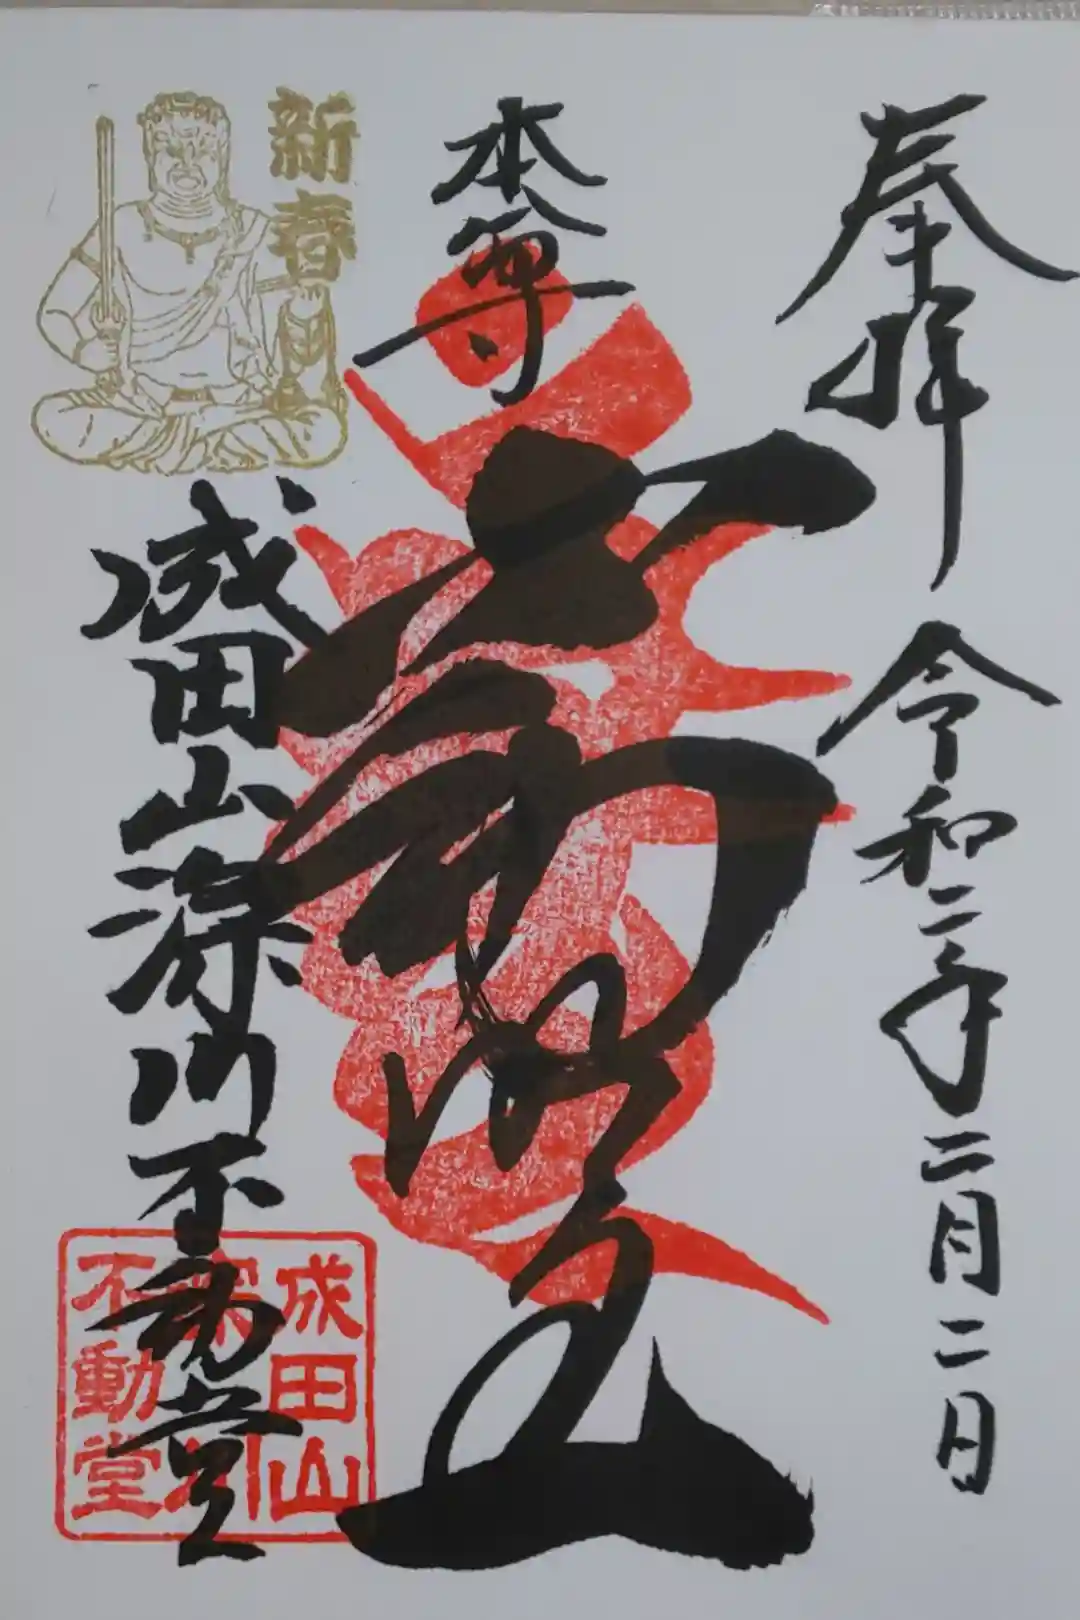 奉拝
令和二年二月二日
本尊
不動明王
新春
成田山深川不動堂
成田山
深川
不動堂